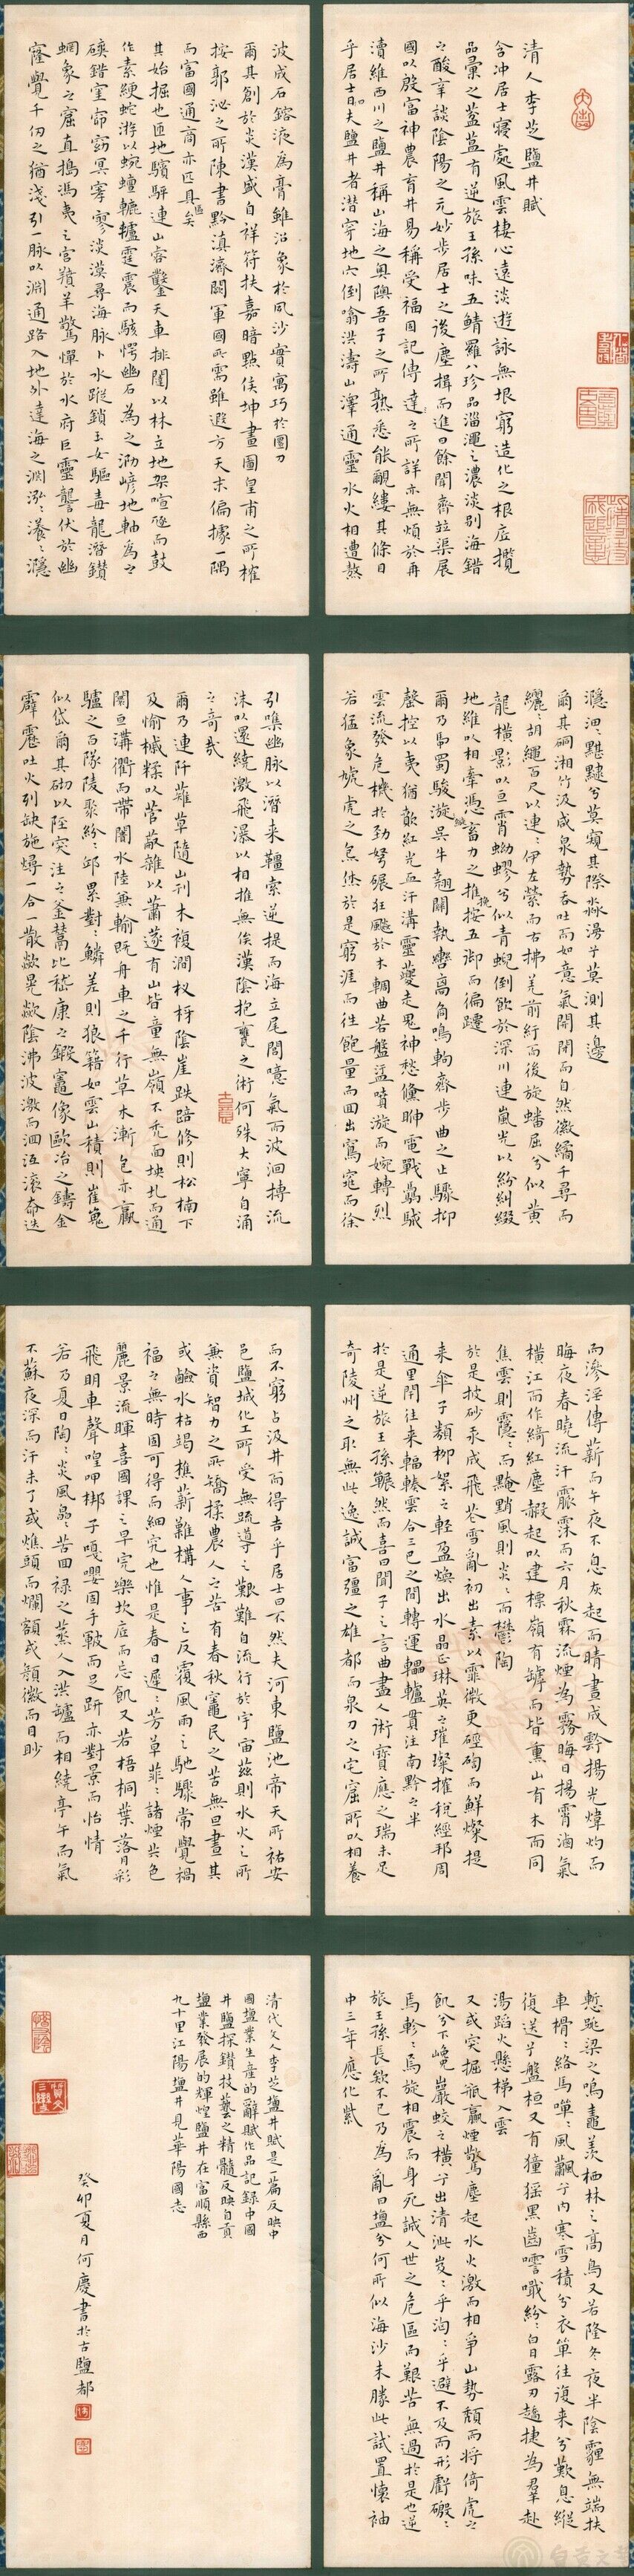 清人李芝鹽井賦
含冲居士寢處風雲棲心遠淡遊詠無垠窮造化之根底攬
品彙之蓋藴有逆旅王孫味五鯖羅八珍品淄澠之濃淡别海錯
之酸辛談陰陽之元妙步居士之後塵揖而進曰餘聞齊竝渠展
國以殷富神農育井易稱受福固記傳之所詳亦無煩於再
瀆維西川之鹽井稱山海之奥隩吾子之所熟悉能覼縷其條目
乎居士曰夫鹽井者潛穿地穴倒噏洪濤山澤通靈水火相遭熬
波成石鎔液為膏雖沿象於風沙實寓巧於圜刀
爾其創於炎漢盛自祥符扶嘉暗點侯坤畫圖皇甫之所榷
按郭泌之所陳書黔滇濟闕軍國所需雖遐方天末偏據一隅
而富國通商亦匹具矣
其始掘也匝地驞駍連山砻鑿天車排闥以林立地架喧豗而鼓
作素綆蛇游以蜿蟺轆轤霆震而駭愕幽石為之泐嵃地軸為之
礦錯室窬窈冥寥淡漠尋海脉卜水蹤鎖玉女驅毒龍潛鑽
蝄象之窟直搗馮夷之宫羵羊驚憚於水府巨靈讋伏於幽
窿覺千仞之猶淺引一脉以淵通路入地外達海之淵泓泓瀁瀁濦
濦泗泗黮黷兮莫窺其際淼漫兮莫測其邊
爾其嗣湘竹汲咸泉勢吞吐而如意氣開閉而自然徽繘千尋而
纚纚胡繩百尺以連連伊左縈而右拂羌前紆而後旋蟠屈兮似黄
龍横影以亘霄蚴蟉兮似青蜺倒飲於深川連嵐光以紛糾綴
地維以相牽憑畜力之推挽按五御而徧躔
爾乃蜀駿漩吴牛翹關執轡高角鳴駒齊步曲之止驟抑
磬控以夷猶歕紅光血汗溝靈夔走鬼神愁儵眒電戰驫駥
雲流發危機於勁弩碾狂飈於木輞曲若盤盂噴漩而婉轉烈
若猛象虓虎之炰烋於是窮涯而往飽量而回出窩窕而徐
引嘬幽脉以潛来轤索逆提而海立尾閭噫氣而波洄摶流
沫以還繞激飛瀑以相推無俟漢陰抱甕之術何殊大寧自涌
之奇哉
爾乃連阡薙草隨山刊木複澗杈枒陰崖跌踣修則松楠下
及榆樕糅以菅蒯雜以蕭蓫有山皆童無嶺不禿面坱圠而通
闤亘溝衢而帶闠水陸兼輸既舟車之千行草木漸包亦蠃
驢之百隊陵聚紛紛邱累對對鱗差則狼籍如雲山積則崔嵬
似岱爾其砌以陘突注之釜鬵比嵇康之鍛竈像歐冶之鑄金
霹靂吐火列缺施燖一合一散歘晃歘陰沸波激而洄沍滚奔迭
而滲淫傳薪而午夜不息灰起而晴晝成黔揚光煒灼而
晦夜春曉流汗霢霂而六月秋霖流煙為霧晦日揚霄滷氣
横江而作綺紅塵赧起以建標嶺有罅而皆熏山有木而同
焦雲則靉靉而黤黯風則炎炎而鬱陶
於是披砂汞成飛花雪亂初出素以霏微更硜砢而鮮燦提
来傘子類柳絮之輕盈煥出水晶正琳英之璀璨摧税經邦周
通里閈往来輻輳雲合三巴之間轉運轀轤貫注南黔之半
於是逆旅王孫囅然而喜曰聞子之言曲盡人術寶應之瑞未足
奇陵州之耿無此逸誠富彊之雄都而泉刀之宅窟所以相養
而不窮占汲井而得吉乎居士曰不然夫河東鹽池帝天所祐安
邑鹽城化工所受無疏導之艱難自流行於宇宙兹則水火之所
兼資智力之所矯揉農人之苦有春秋竈民之苦無旦晝其
或鹼水枯竭樵薪難構人事之反覆風雨之馳驟常覺禍
福之無時固可得而細究也惟是春日遲遲芳草菲菲諸煙共色
麗景流暉喜國課之早完樂坎底而忘飢又若梧桐葉落月彩
飛明車聲喤呷梆子嘎嚶固手皸而足趼亦對景而怡情
若乃夏日陶陶炎風苦回禄之蒸人入洪罏而相繞亭午而氣
不蘇夜深而汗未了或燋頭而爛額或顏黴而目眇
慙跳梁之鳴鼃羡栖林之高鳥又若隆冬夜半陰霾無端扶
車榾榾絡馬嘽嘽風飄兮内寒雪積兮衣單往復来兮歎息縱
復送兮盤桓又有獞猺黑齒噂噧紛紛白日露刃趫捷為羣赴
湯蹈火懸梯入雲
又或突掘瓶羸煙驚塵起水火激而相爭山勢頽而將倚虎之
飢兮下崦巖蛟之横兮出清泚岌岌乎洶洶乎避不及而形虧磤磤
焉軫軫焉旋相震而身死誠人世之危區而艱苦無過於是也逆
旅王孫長欸不已乃為亂曰塩兮何所似海沙未勝此試置懷袖
中三年應化紫
清代文人李芝塩井賦是一篇反映中
國塩業生産的辭賦作品記録中國
井塩探鑽技藝之精髓反映自貢
塩業發展的輝煌塩井在富順縣西
九十里江陽塩井見華陽國志
癸卯夏月何慶書於古鹽都